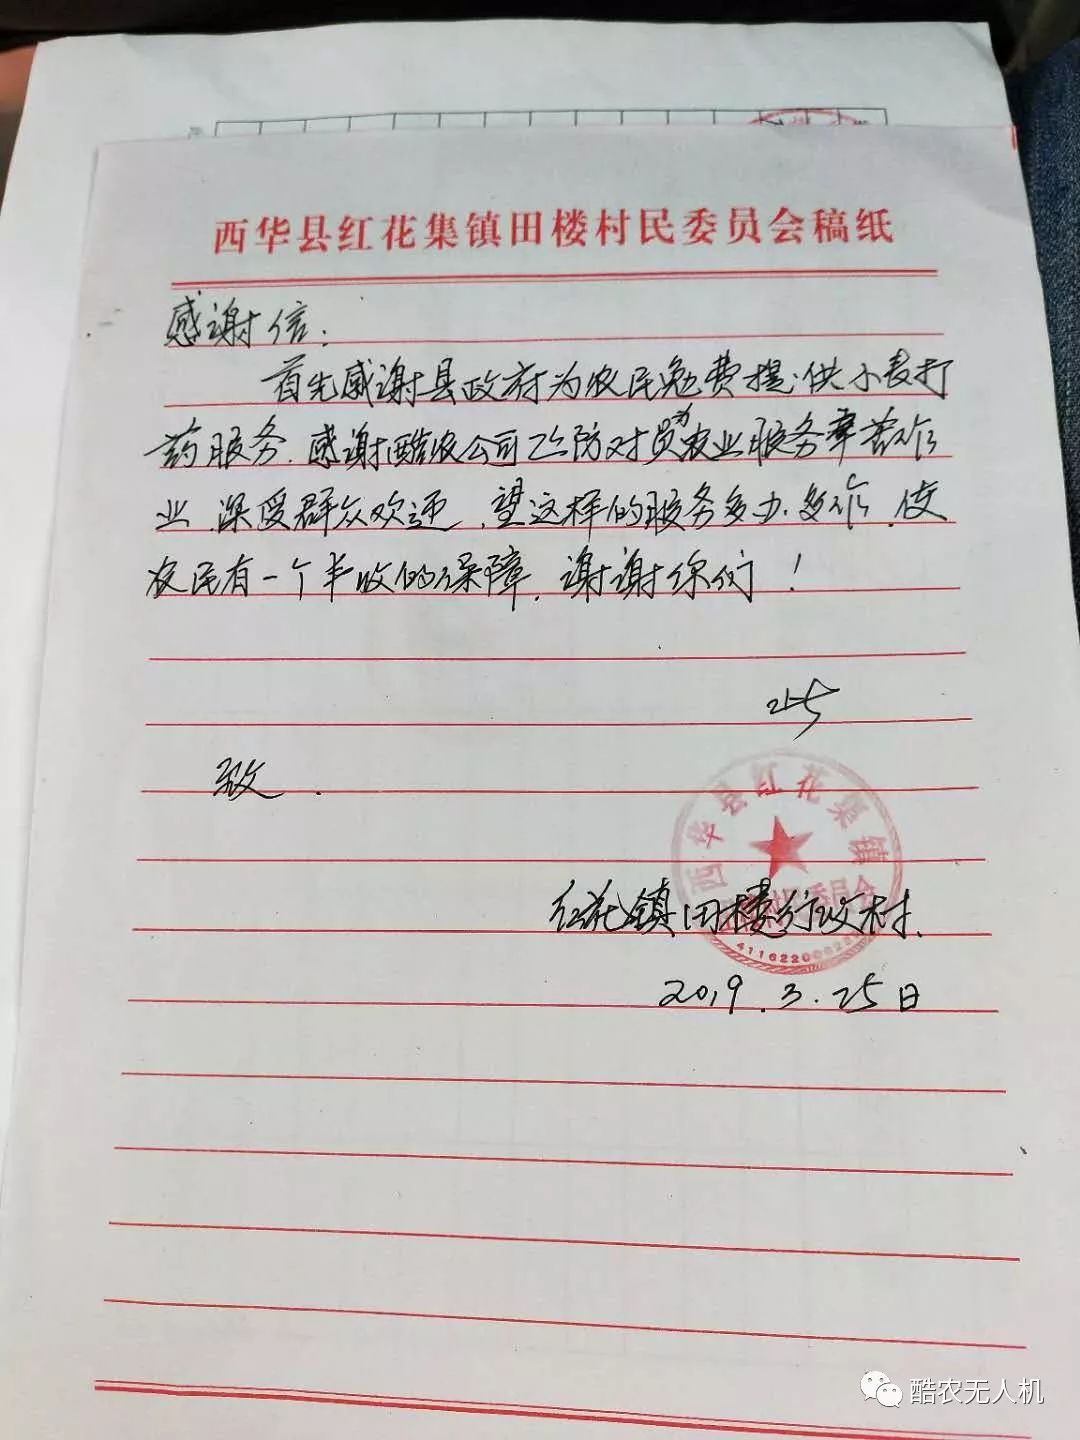 西华县红花集镇田楼村民委员会稿纸
感谢信:
首先感谢县政府为农民免费提供小麦打
药服务.感谢酷农公司飞防对员为农业服务辛苦作
业.深受群众欢迎.望这样的服务多办.多作.使
农民有一个丰收的保障.谢谢你们!
此
致.
西华县红花集镇
村民委员会
红花镇田楼行政村.
2019.3.25日
酷农无人机